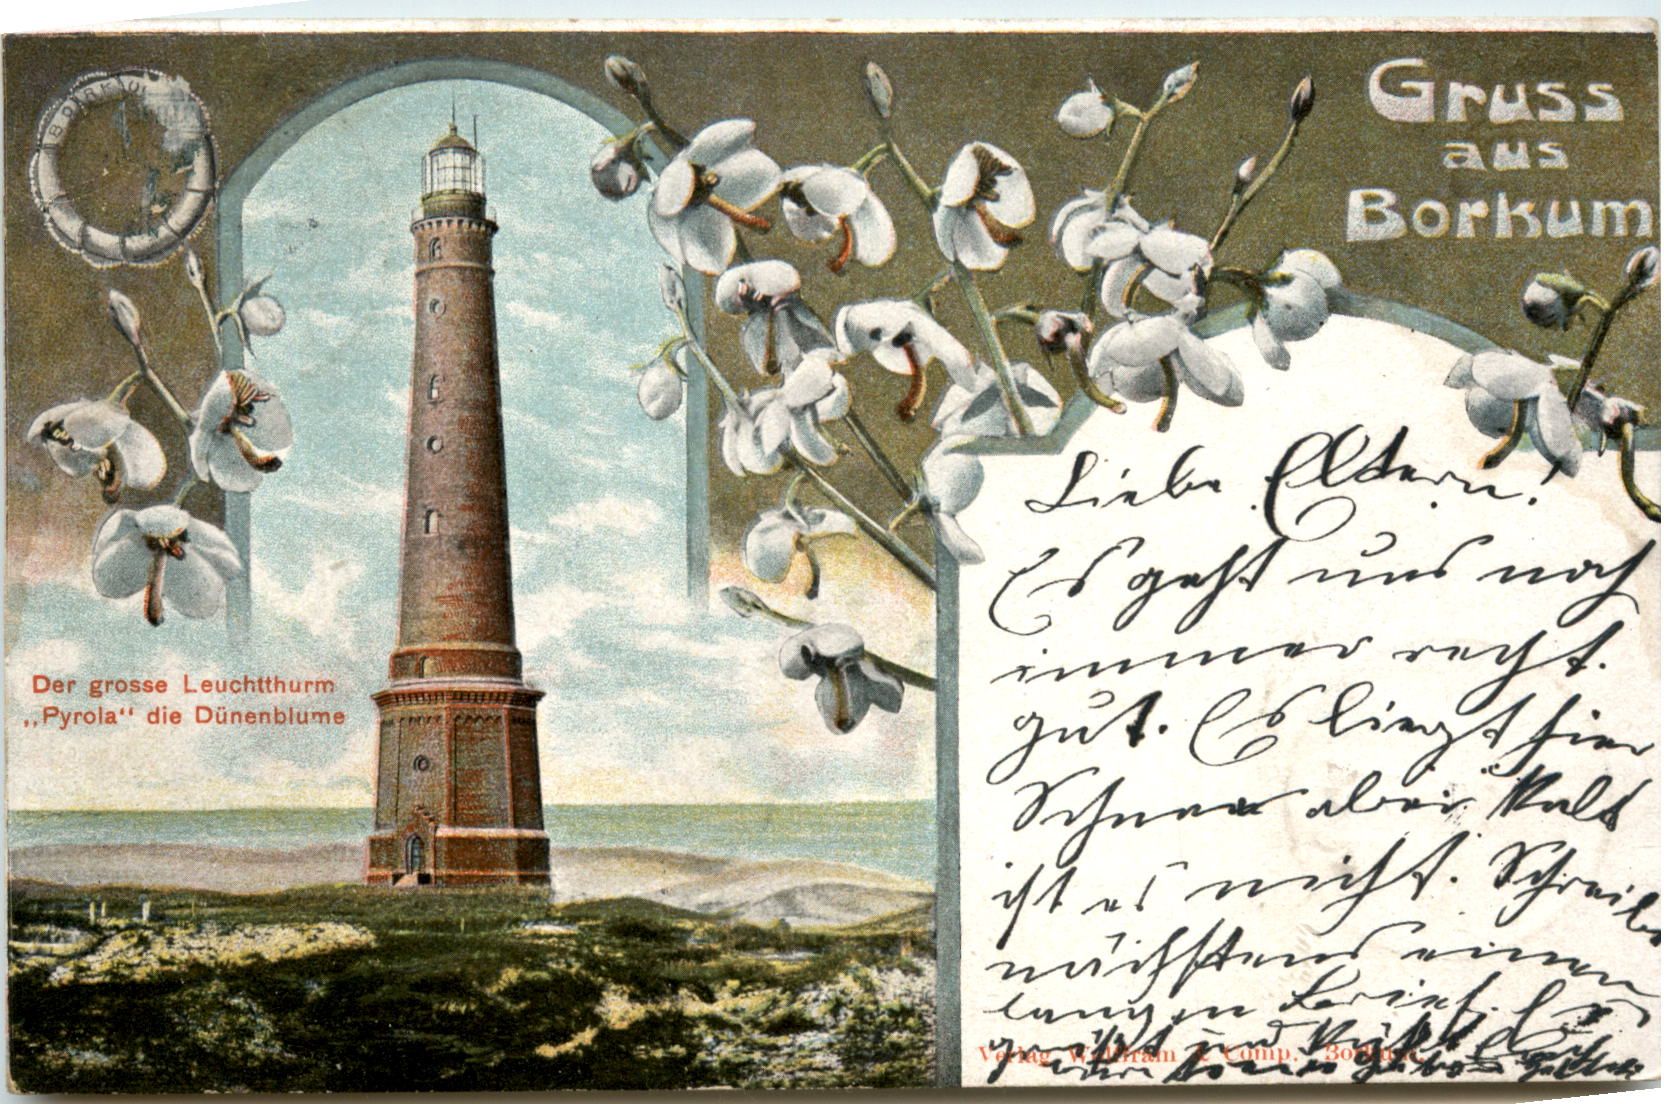 Gruss
aus
Borkum
Der grosse Leuchtthurm
„Pyrola“ die Dünenblume
Liebe Eltern!
Es geht uns noch
immer recht
gut. Es liegt hier
Schnee aber kalt
ist es nicht. Schreibe
nächstens einen
langen Brief. Es
grüßt und küßt
Verlag Wolffram & Comp. Borkum.